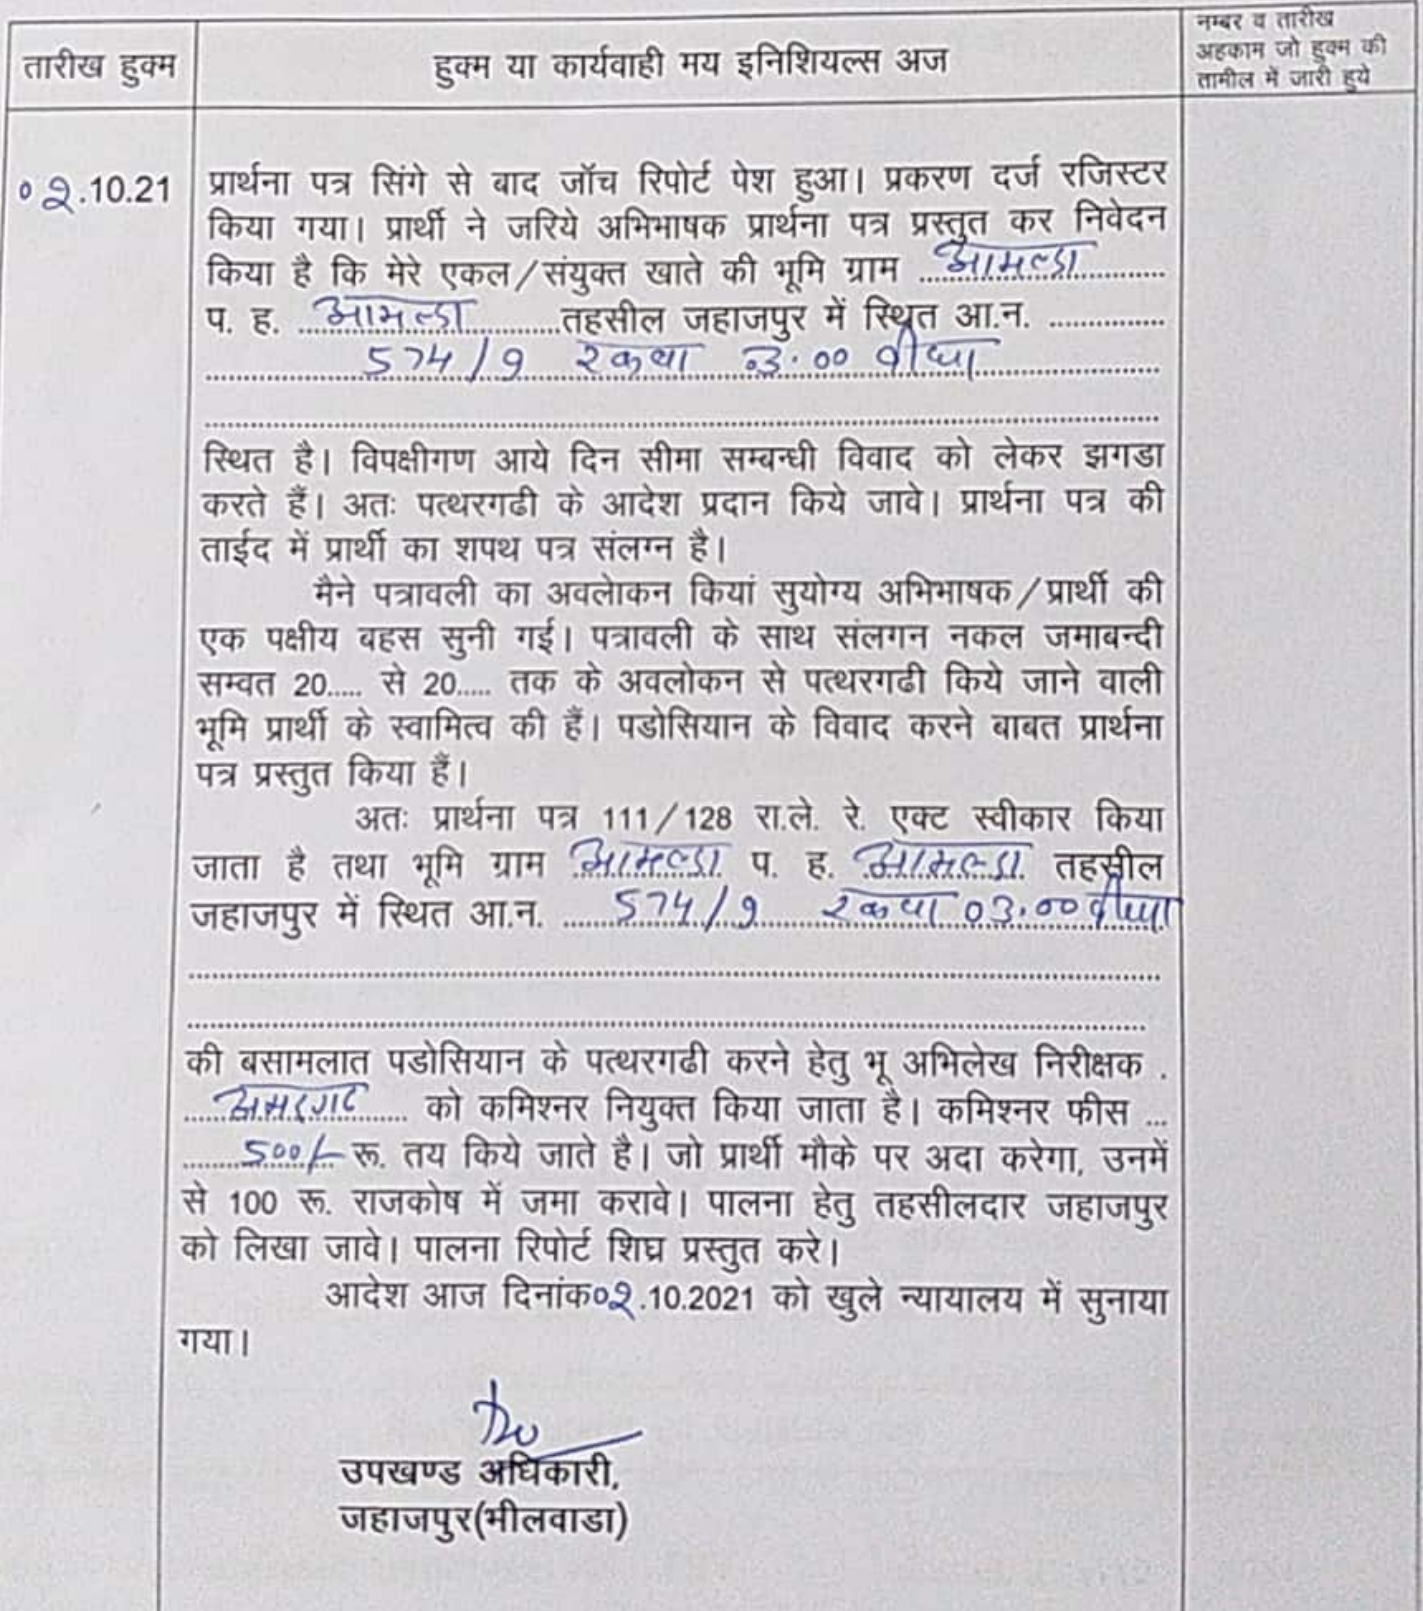 तारीख हुक्म
हुक्म या कार्यवाही मय इनिशियल्स अज
नम्बर व तारीख
अहकाम जो हुक्म की
तामील में जारी हुये
०२.10.21
प्रार्थना पत्र सिंगे से बाद जॉच रिपोर्ट पेश हुआ। प्रकरण दर्ज रजिस्टर
किया गया। प्रार्थी ने जरिये अभिभाषक प्रार्थना पत्र प्रस्तुत कर निवेदन
किया है कि मेरे एकल/संयुक्त खाते की भूमि ग्राम आमल्डा
प. ह. आमल्डा तहसील जहाजपुर में स्थित आ.न. ..............
574/9 रकबा 03.00 बीघा
स्थित है। विपक्षीगण आये दिन सीमा सम्बन्धी विवाद को लेकर झगडा
करते हैं। अतः पत्थरगढी के आदेश प्रदान किये जावे। प्रार्थना पत्र की
ताईद में प्रार्थी का शपथ पत्र संलग्न है।
मैने पत्रावली का अवलोकन कियां सुयोग्य अभिभाषक/प्रार्थी की
एक पक्षीय बहस सुनी गई। पत्रावली के साथ संलगन नकल जमाबन्दी
सम्वत 20..... से 20..... तक के अवलोकन से पत्थरगढी किये जाने वाली
भूमि प्रार्थी के स्वामित्व की हैं। पडोसियान के विवाद करने बाबत प्रार्थना
पत्र प्रस्तुत किया हैं।
अतः प्रार्थना पत्र 111/128 रा.ले. रे. एक्ट स्वीकार किया
जाता है तथा भूमि ग्राम आमल्डा प. ह. आमल्डा तहसील
जहाजपुर में स्थित आ.न. 574/9 रकबा 03.00 बीघा
की बसामलात पडोसियान के पत्थरगढी करने हेतु भू अभिलेख निरीक्षक .
अमरगढ को कमिश्नर नियुक्त किया जाता है। कमिश्नर फीस ...
500/- रू. तय किये जाते है। जो प्रार्थी मौके पर अदा करेगा, उनमें
से 100 रू. राजकोष में जमा करावे। पालना हेतु तहसीलदार जहाजपुर
को लिखा जावे। पालना रिपोर्ट शिघ्र प्रस्तुत करे।
आदेश आज दिनांक०२.10.2021 को खुले न्यायालय में सुनाया
गया।
उपखण्ड अधिकारी,
जहाजपुर(भीलवाडा)